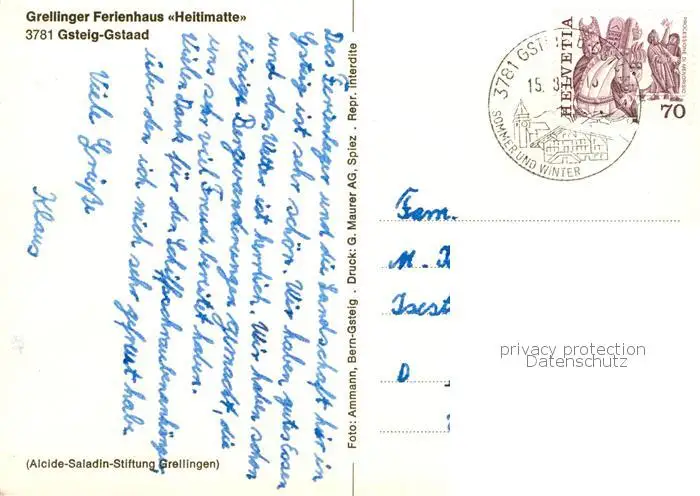 Grellinger Ferienhaus «Heitimatte»
3781 Gsteig-Gstaad
Das Ferienlager und die Landschaft hier in
Gsteig ist sehr schön. Wir haben gutes Essen
und das Wetter ist herrlich. Wir haben schon
einige Bergwanderungen gemacht, die
uns sehr viel Freude bereitet haben.
Vielen Dank für den Schiffsschraubenanhänger
über den ich mich sehr gefreut habe.
Viele Grüße
Klaus
(Alcide-Saladin-Stiftung Grellingen)
Foto: Ammann, Bern-Gsteig . Druck: G. Maurer AG, Spiez . Repr. interdite
3781 GST
15.
SOMMER UND WINTER
HELVETIA
PROCESSIONE DI MENDRISIO
70
Fam.
M.
Isest
D
privacy protection
Datenschutz